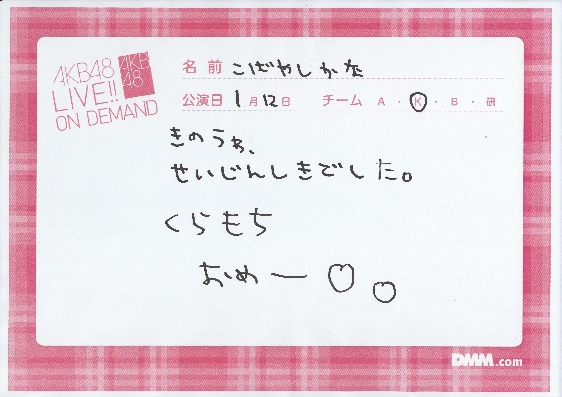 AKB48
LIVE!!
ON DEMAND
AKB
48
名前 こばやしかな
公演日 1月12日 チーム A・K・B・研
きのうね、
せいじんしきでした。
くらもち
おめー♡。
DMM.com